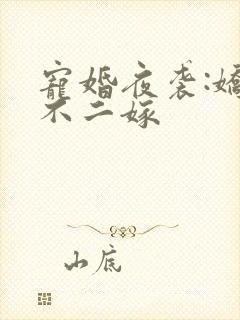 寵婚夜袭:嬌
不二嫁
山底